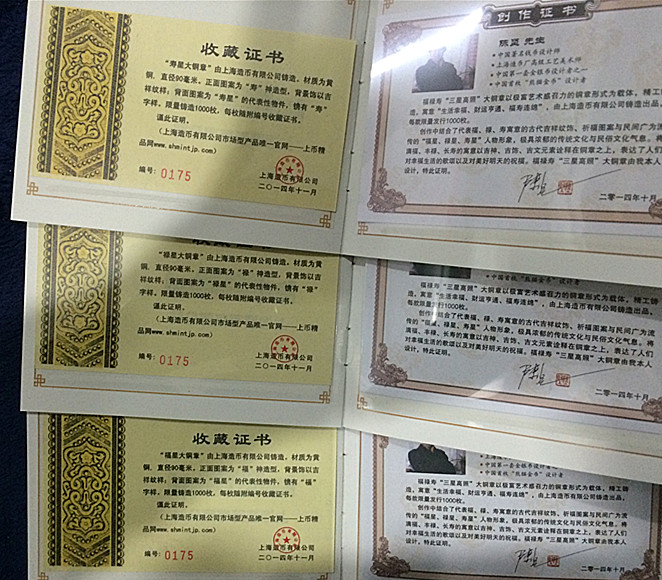 收藏证书
“寿星大铜章”由上海造币有限公司铸造，材质为黄
铜，直径90毫米，正面图案为“寿”神造型，背景饰以吉
祥纹样；背面图案为“寿星”的代表性物件，镌有“寿”
字样，限量铸造1000枚，每枚随附编号收藏证书。
谨此证明。
（上海造币有限公司市场型产品唯一官网——上币精
品网www.shmintjp.com）
编号：0175
上海造币有限公司
二〇一四年十一月
创作证书
陈坚 先生
·中国著名钱币设计师
·上海造币厂高级工艺美术师
·中国第一套金银币设计者之一
·中国首枚“熊猫金币”设计者
福禄寿“三星高照”大铜章以极富艺术感召力的铜章形式为载体，精工铸
造，寓意“生活幸福、财运亨通、福寿连绵”，由上海造币有限公司铸造出品，
每款限量发行1000枚。
创作中结合了代表福、禄、寿寓意的古代吉祥纹饰、祈福图案与民间广为
传的“福星、禄星、寿星”人物形象，极具浓郁的传统文化与民俗文化气息。将
满福、丰禄、长寿的寓意以吉神、吉饰、古文元素诠释在铜章之上，表达了人们
对幸福生活的歌颂以及对美好明天的祝福。福禄寿“三星高照”大铜章由我本人
设计，特此证明。
二零一四年十月
“禄星大铜章”由上海造币有限公司铸造，材质为黄
铜，直径90毫米，正面图案为“禄”神造型，背景饰以吉
祥纹样；背面图案为“禄星”的代表性物件，镌有“禄”
字样，限量铸造1000枚，每枚随附编号收藏证书。
谨此证明。
（上海造币有限公司市场型产品唯一官网——上币精
品网www.shmintjp.com）
编号：0175
上海造币有限公司
二〇一四年十一月
·中国首枚“熊猫金币”设计者
福禄寿“三星高照”大铜章以极富艺术感召力的铜章形式为载体，精工铸
造，寓意“生活幸福、财运亨通、福寿连绵”，由上海造币有限公司铸造出品，
每款限量发行1000枚。
创作中结合了代表福、禄、寿寓意的古代吉祥纹饰、祈福图案与民间广为流
传的“福星、禄星、寿星”人物形象，极具浓郁的传统文化与民俗文化气息。将
满福、丰禄、长寿的寓意以吉神、吉饰、古文元素诠释在铜章之上，表达了人们
对幸福生活的歌颂以及对美好明天的祝福。福禄寿“三星高照”大铜章由我本人
设计，特此证明。
二零一四年十月
收藏证书
“福星大铜章”由上海造币有限公司铸造，材质为黄
铜，直径90毫米，正面图案为“福”神造型，背景饰以吉
祥纹样；背面图案为“福星”的代表性物件，镌有“福”
字样，限量铸造1000枚，每枚随附编号收藏证书。
谨此证明。
（上海造币有限公司市场型产品唯一官网——上币精
品网www.shmintjp.com）
编号：0175
上海造币有限公司
二〇一四年十一月
·中国第一套金银币设计者之一
·中国首枚“熊猫金币”设计者
福禄寿“三星高照”大铜章以极富艺术感召力的铜章形式为载体，精工铸
造，寓意“生活幸福、财运亨通、福寿连绵”，由上海造币有限公司铸造出品，
每款限量发行1000枚。
创作中结合了代表福、禄、寿寓意的古代吉祥纹饰、祈福图案与民间广为流
传的“福星、禄星、寿星”人物形象，极具浓郁的传统文化与民俗文化气息。将
满福、丰禄、长寿的寓意以吉神、吉饰、古文元素诠释在铜章之上，表达了人们
对幸福生活的歌颂以及对美好明天的祝福。福禄寿“三星高照”大铜章由我本人
设计，特此证明。
二零一四年十月